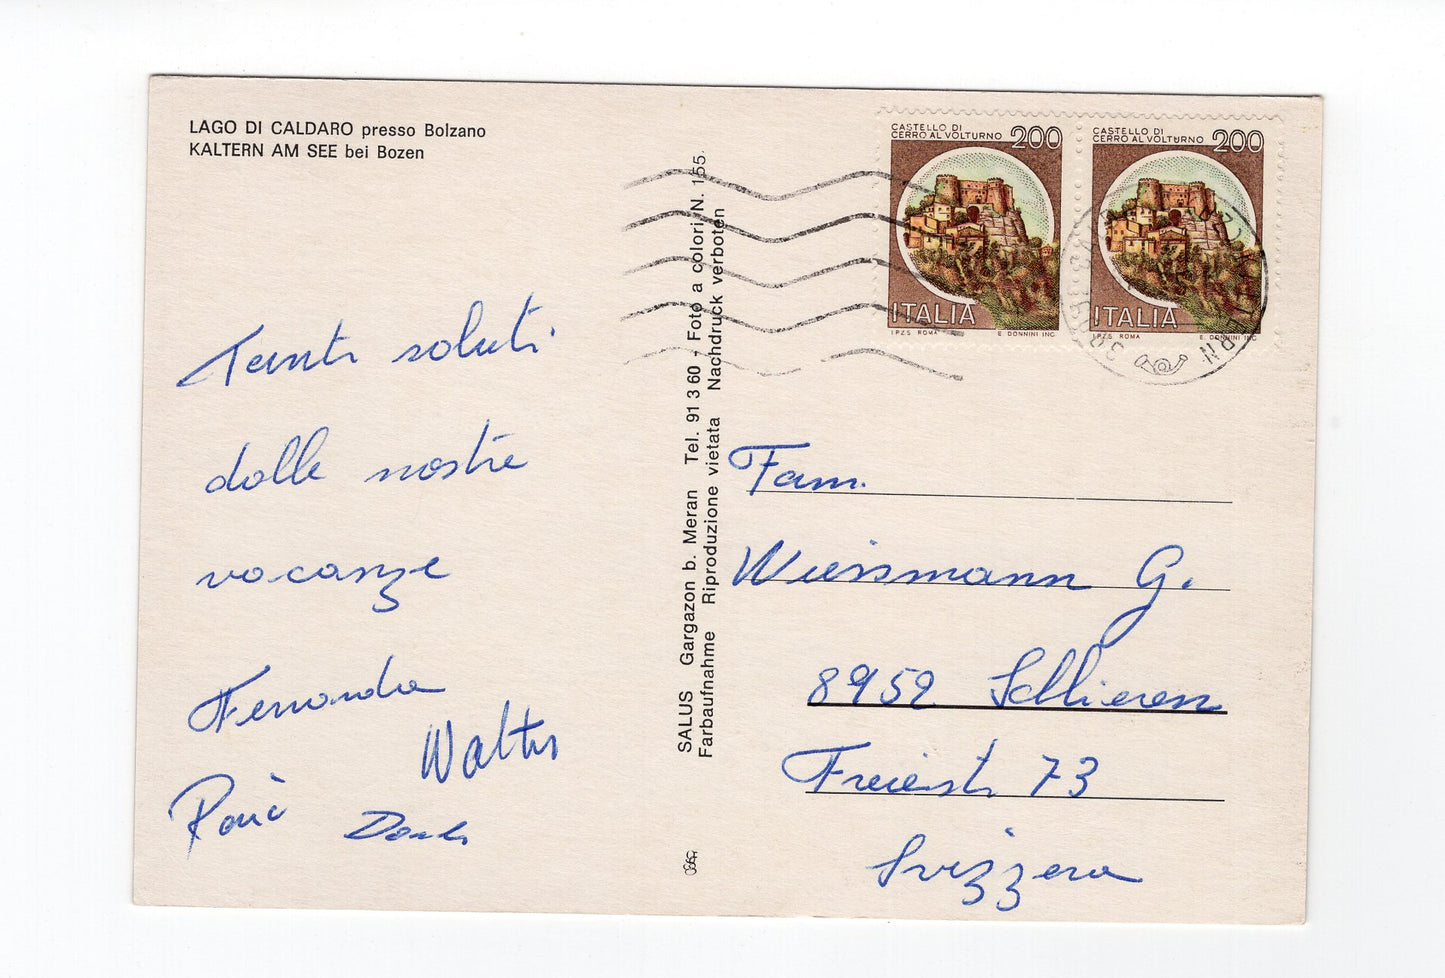 LAGO DI CALDARO presso Bolzano
KALTERN AM SEE bei Bozen
Tanti saluti
dalle nostre
vacanze
Fernanda
Walter
SALUS Gargazon b. Meran Tel. 91 3 60 - Foto a colori N. 155.
Farbaufnahme Riproduzione vietata Nachdruck verboten
CASTELLO DI
CERRO AL VOLTURNO 200
ITALIA
I.P.Z.S. ROMA E. DONNINI INC.
CASTELLO DI
CERRO AL VOLTURNO 200
ITALIA
I.P.Z.S. ROMA E. DONNINI INC.
Fam.
Wiessmann G.
8952 Schlieren
Freiestr. 73
Svizzera